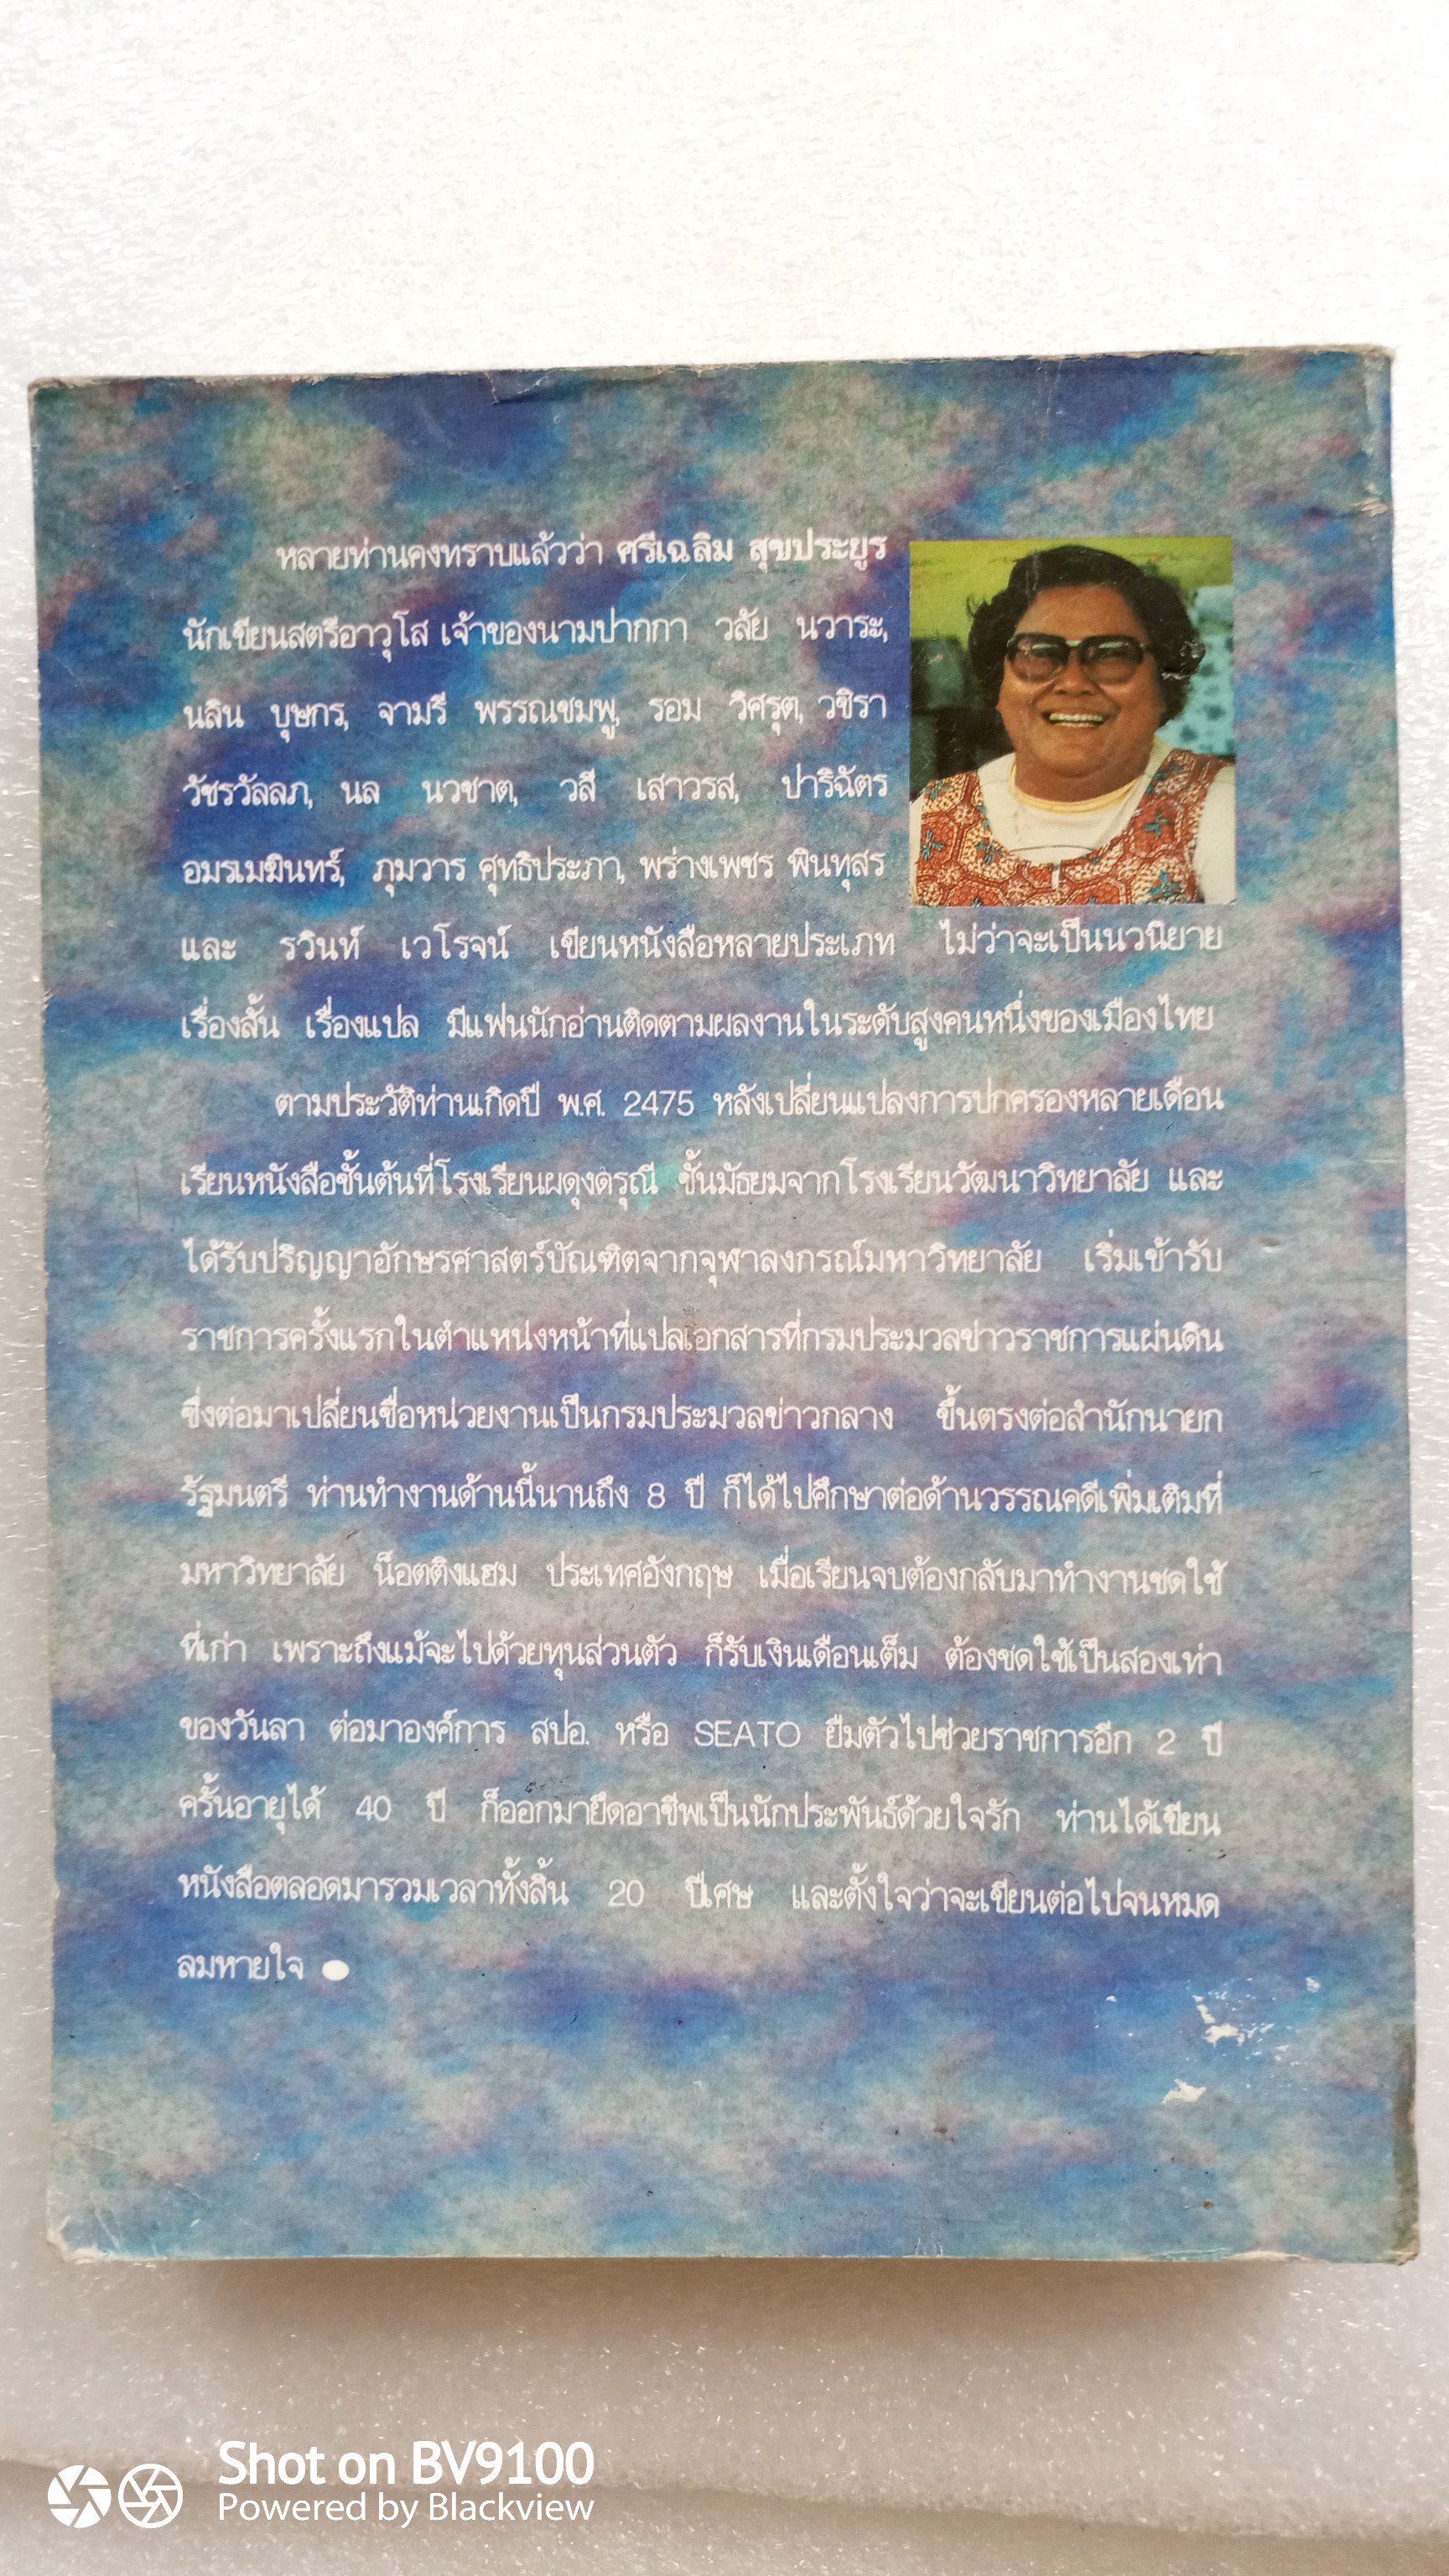 หลายท่านคงทราบแล้วว่า ศรีเฉลิม สุขประยูร
นักเขียนสตรีอาวุโส เจ้าของนามปากกา วลัย นวาระ,
นลิน บุษกร, จามรี พรรณชมพู, รอม วิศรุต, วชิรา
วัชรวัลลภ, นล นวชาต, วสี เสาวรส, ปาริฉัตร
อมรเมฆินทร์, ภุมวาร ศุทธิประภา, พร่างเพชร พินทุสร
และ รวินท์ เวโรจน์ เขียนหนังสือหลายประเภท ไม่ว่าจะเป็นนวนิยาย
เรื่องสั้น เรื่องแปล มีแฟนนักอ่านติดตามผลงานในระดับสูงคนหนึ่งของเมืองไทย
ตามประวัติท่านเกิดปี พ.ศ. 2475 หลังเปลี่ยนแปลงการปกครองหลายเดือน
เรียนหนังสือชั้นต้นที่โรงเรียนผดุงดรุณี ชั้นมัธยมจากโรงเรียนวัฒนาวิทยาลัย และ
ได้รับปริญญาอักษรศาสตร์บัณฑิตจากจุฬาลงกรณ์มหาวิทยาลัย เริ่มเข้ารับ
ราชการครั้งแรกในตำแหน่งหน้าที่แปลเอกสารที่กรมประมวลข่าวราชการแผ่นดิน
ซึ่งต่อมาเปลี่ยนชื่อหน่วยงานเป็นกรมประมวลข่าวกลาง ขึ้นตรงต่อสำนักนายก
รัฐมนตรี ท่านทำงานด้านนี้นานถึง 8 ปี ก็ได้ไปศึกษาต่อด้านวรรณคดีเพิ่มเติมที่
มหาวิทยาลัย น็อตติงแฮม ประเทศอังกฤษ เมื่อเรียนจบต้องกลับมาทำงานชดใช้
ที่เก่า เพราะถึงแม้จะไปด้วยทุนส่วนตัว ก็รับเงินเดือนเต็ม ต้องชดใช้เป็นสองเท่า
ของวันลา ต่อมาองค์การ สปอ. หรือ SEATO ยืมตัวไปช่วยราชการอีก 2 ปี
ครั้นอายุได้ 40 ปี ก็ออกมายึดอาชีพเป็นนักประพันธ์ด้วยใจรัก ท่านได้เขียน
หนังสือตลอดมารวมเวลาทั้งสิ้น 20 ปีเศษ และตั้งใจว่าจะเขียนต่อไปจนหมด
ลมหายใจ ●
Shot on BV9100
Powered by Blackview